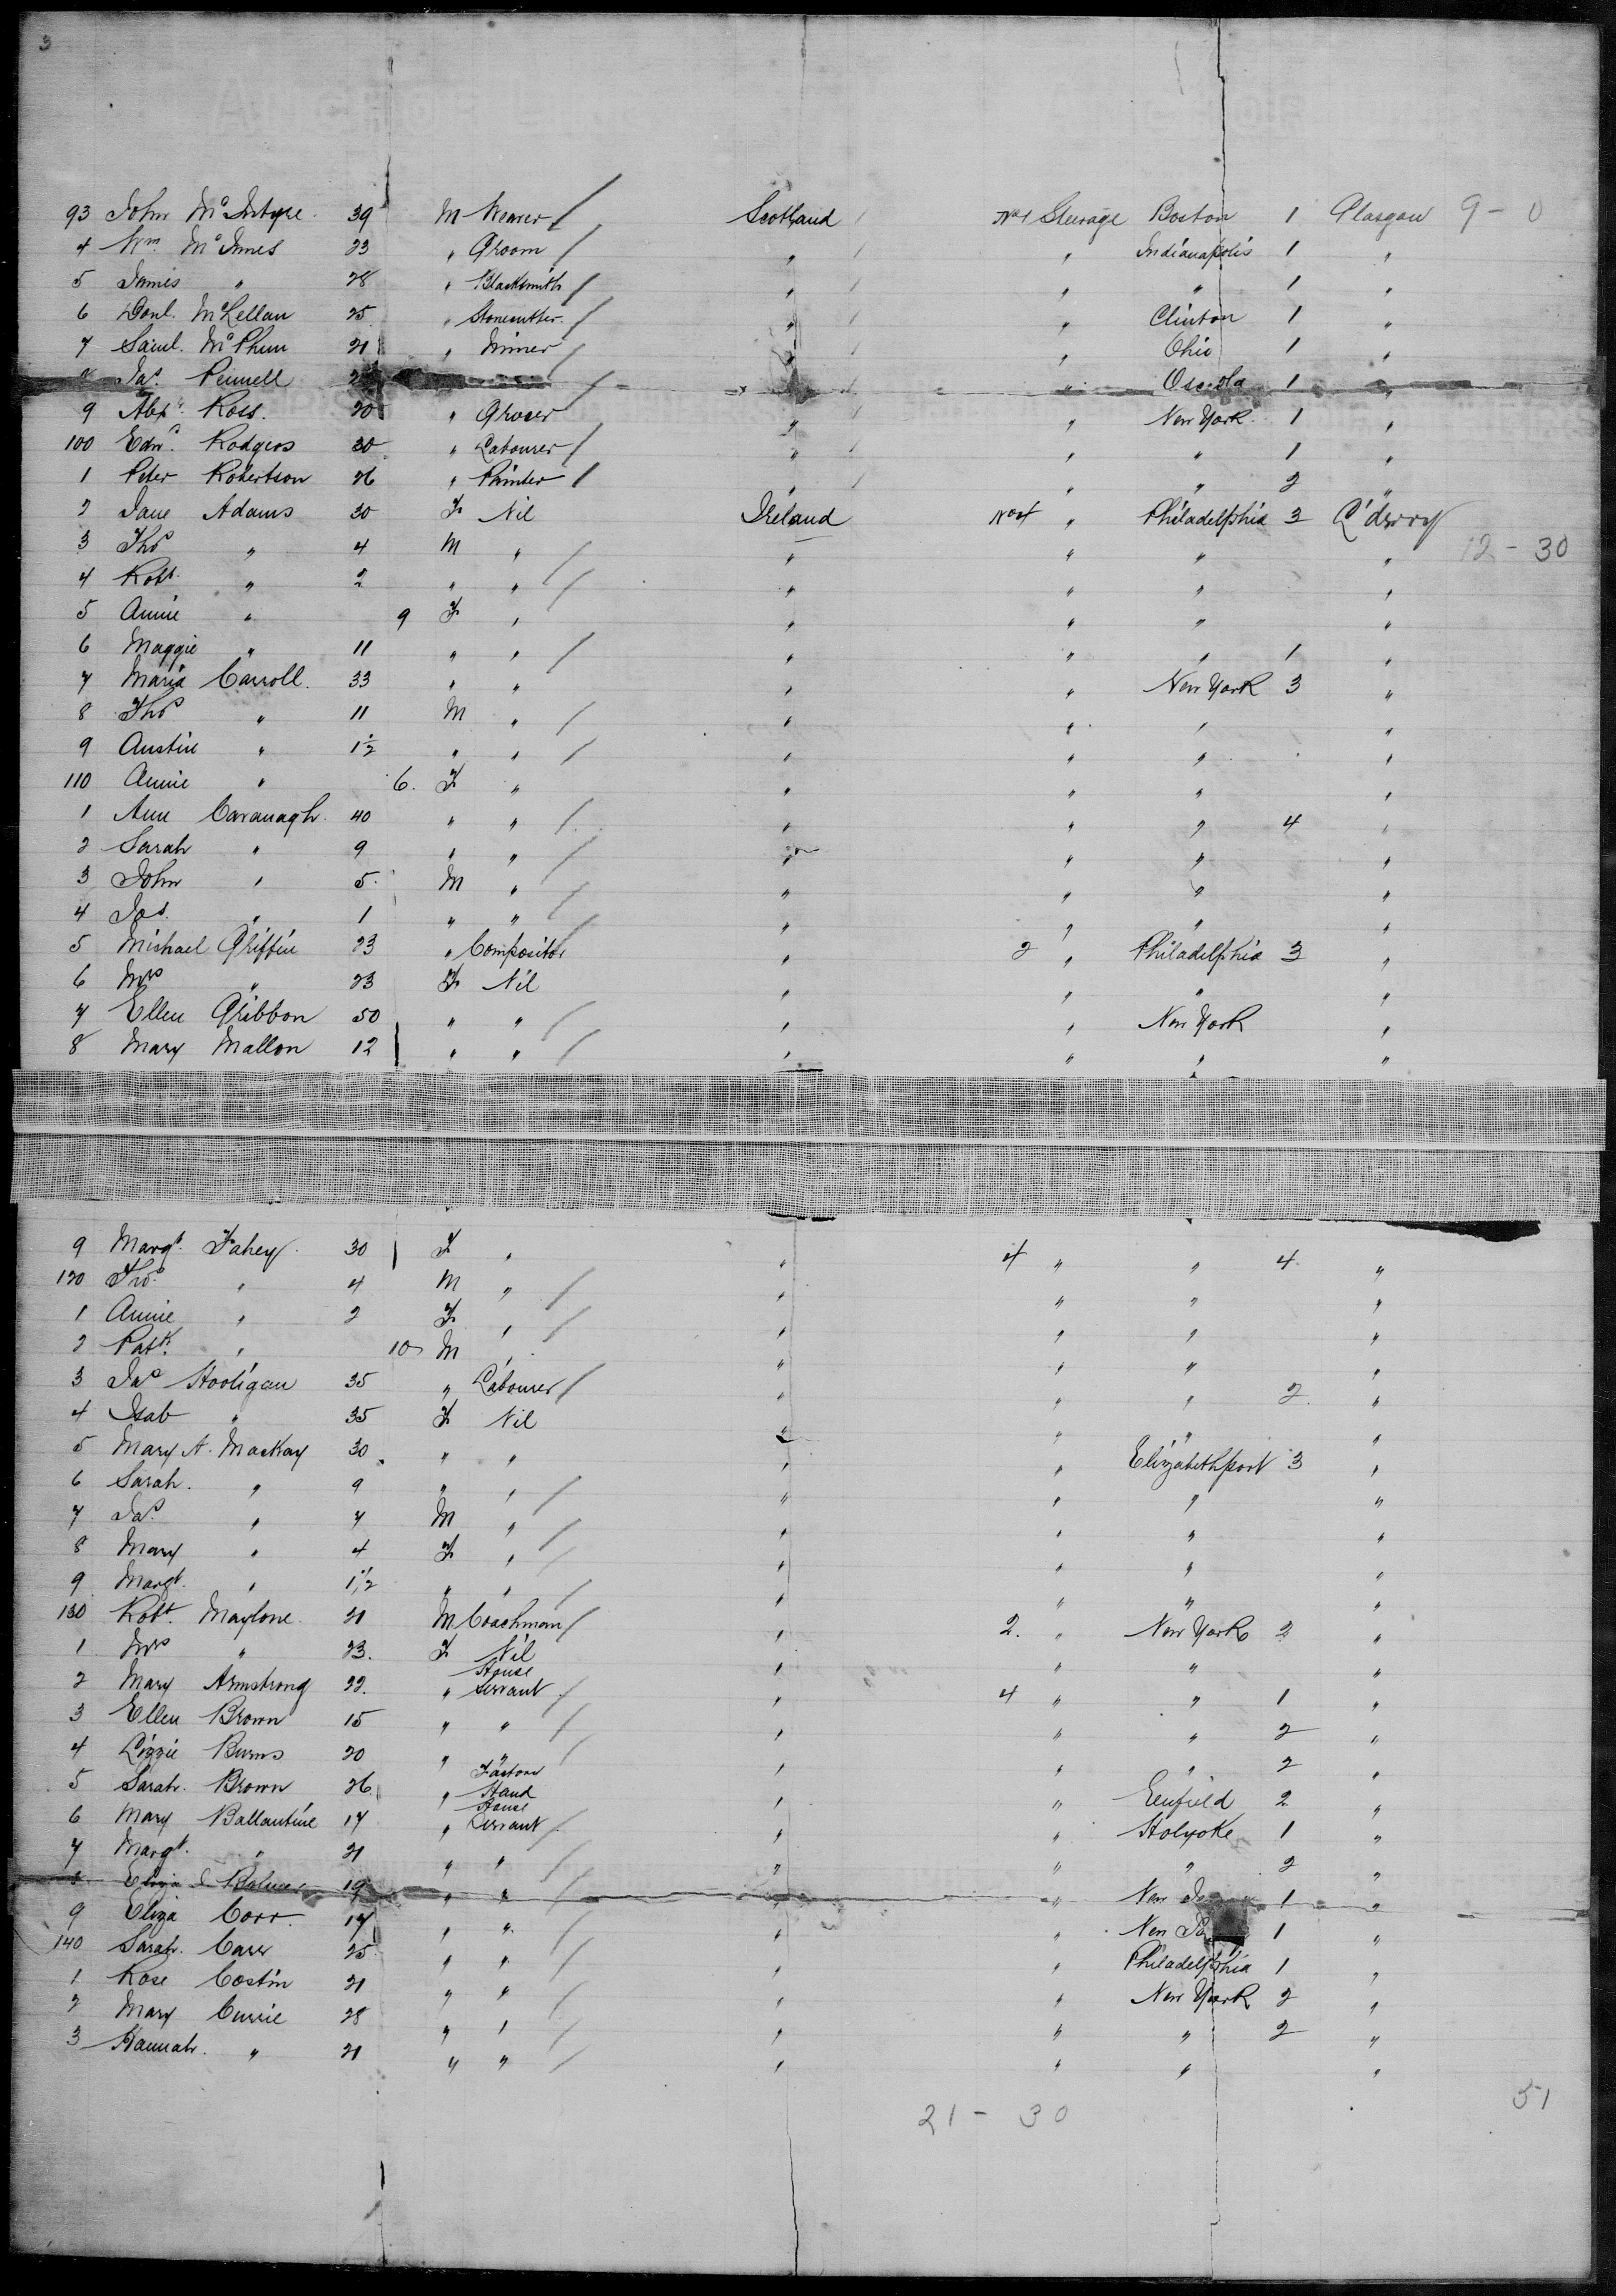 3
93 John McIntyre. 39 M Weaver / Scotland / No 1 Steerage Boston 1 Glasgow 9 - 0
4 Wm. McInnes 23 " Groom / " / " Indianapolis 1 "
5 James " 28 " Blacksmith / " / " " 1 "
6 Donl. McLellan 25 " Stonecutter. / " / " Clinton 1 "
7 Saml. McPhun 21 " Miner / " / " Ohio 1 "
Jas. Pennell / " / " 1 "
9 Alexr. Ross. 20 " Grocer " / " New York 1 "
100 Edwd. Rodgers 30 " Labourer / " / " " 1 "
1 Peter Robertson 26 " Painter / " / " " 2 "
2 Jane Adams 30 F Nil Ireland No 4 " Philadelphia 3 L'derry
3 Thos " 4 M " / " " " " 12 - 30
4 Robt. " 2 " " / " " " "
5 Annie " 9 F " " " " "
6 Maggie " 11 " " / " " " 1 "
7 Maria Carroll. 33 " " " " New York 3 "
8 Thos " 11 M " / " " " "
9 Austin " 1½ " " / " " " "
110 Annie " 6. F " " " " "
1 Ann Cavanagh. 40 " " / " " " 4 "
2 Sarah " 9 " " / " " " "
3 John " 5. M " / " " " "
4 Jos. " 1 " " / " " " "
5 Michael Griffin 23 " Compositor " 2 " Philadelphia 3 "
6 Mrs " 23 F Nil " " " "
7 Ellen Gribbon 50 " " / " " New York "
8 Mary Mallon 12 " " / " " " "
9 Margt. Fahey. 30 F " " 4 " " 4 "
120 Thos. " 4 M " / " " " "
1 Annie " 2 F " / " " " "
2 Patk. " 10 M " " " " "
3 Jas Hooligan 35 " Labourer / " " " 2. "
4 Isab " 35 F Nil " " " "
5 Mary A. Mackay 30 " " " " Elizabethport 3 "
6 Sarah. " 9 " " / " " " "
7 Jas. " 7 M " / " " " "
8 Mary " 4 F " / " " " "
9 Margt. " 1½ " " / " " " "
130 Robt. Maylone. 21 M Coachman / " 2. " New York 2 "
1 Mrs " 23. F Nil " " " "
2 Mary Armstrong 22. " House Servant / " 4 " " 1 "
3 Ellen Brown 15 " " / " " " 2 "
4 Lizzie Burns 20 " " / " " " 2 "
5 Sarah. Brown 26. " Factory Hand " " Enfield 2 "
6 Mary Ballantine 17 " House Servant / " " Holyoke 1 "
7 Margt. " 21 " " / " " " 2 "
Eliza 19 " " / " " New 1 "
9 Eliza Corr. 17 " " / " " New 1 "
140 Sarah. Carr 25 " " / " " Philadelphia 1 "
1 Rose Costin 21 " " / " " New York 2 "
2 Mary Currie 28 " " / " " " 2 "
3 Hannah. " 21 " " / " " " "
21 - 30
51